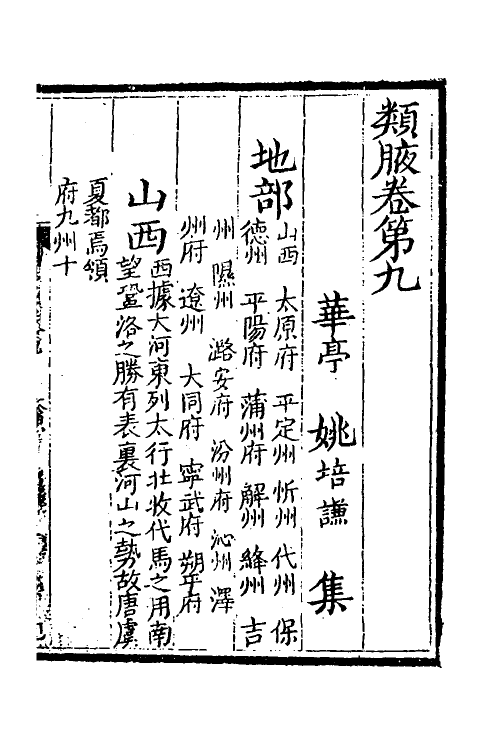 類腋卷第九
華亭 姚培謙 集
地部
山西 太原府 平定州 忻州 代州 保
德州 平陽府 蒲州府 解州 絳州 吉
州 隰州 潞安府 汾州府 沁州 澤
州府 遼州 大同府 寧武府 朔平府
山西
西據大河東列太行壯牧代馬之用南
望鞏洛之勝有表裏河山之勢故唐虞
夏都焉領
府九州十